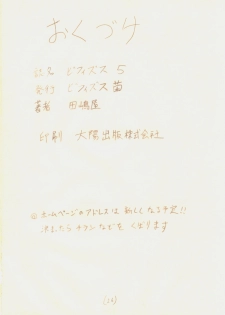 おくづけ
誌名 ビフィズス 5
発行 ビフィズス菌
著者 田嶋屋
印刷 大陽出版株式会社
※ホームページのアドレスは新しくなる予定!!
決まったらチラシなどをくばります
(24)